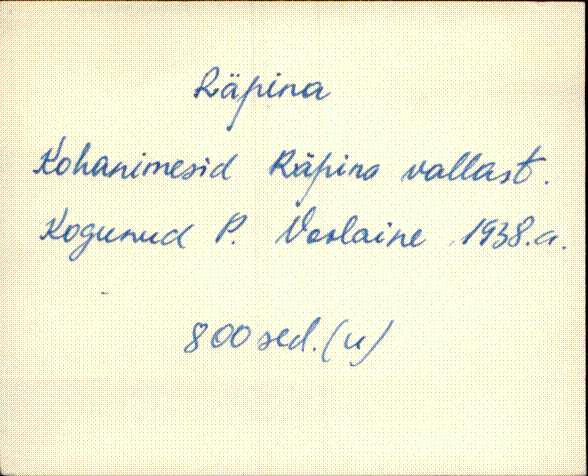 Räpina
Kohanimesid Räpina vallast.
Kogunud P. Voolaine 1938.a.
800 sed. (u)